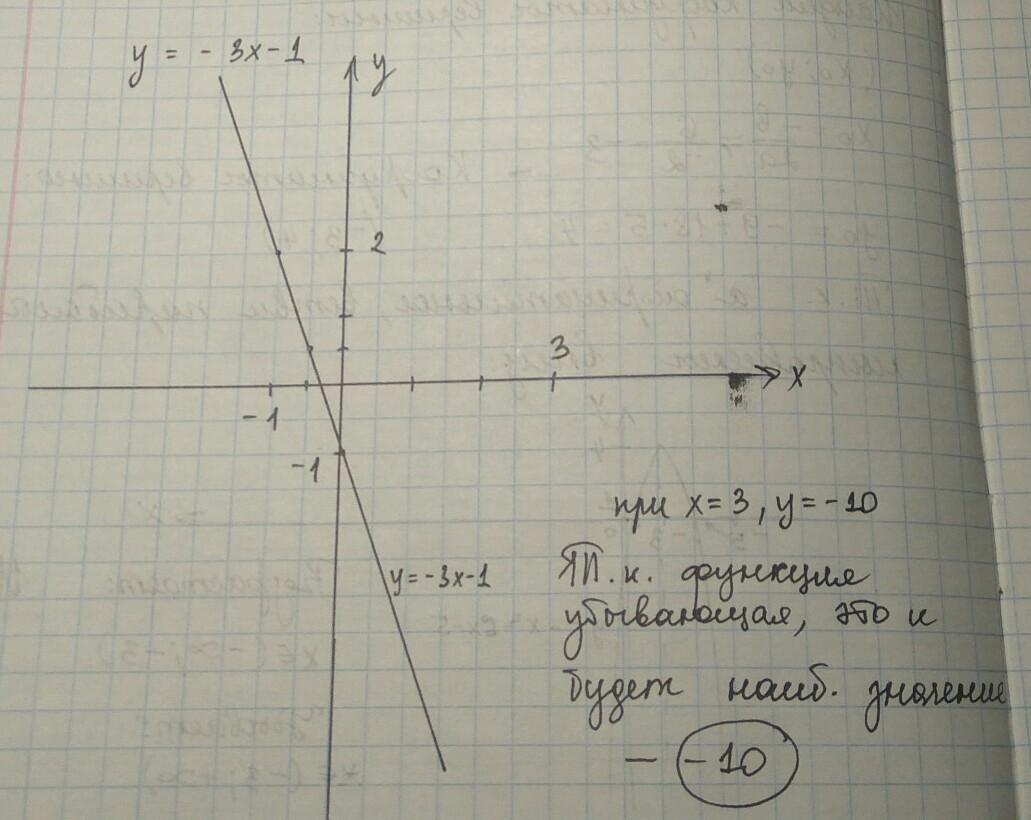 y = - 3x - 1
y
2
3
x
-1
-1
при x = 3, y = -10
y = -3x - 1
Т.к. функция
убывающая, это и
будет наиб. значение
— -10